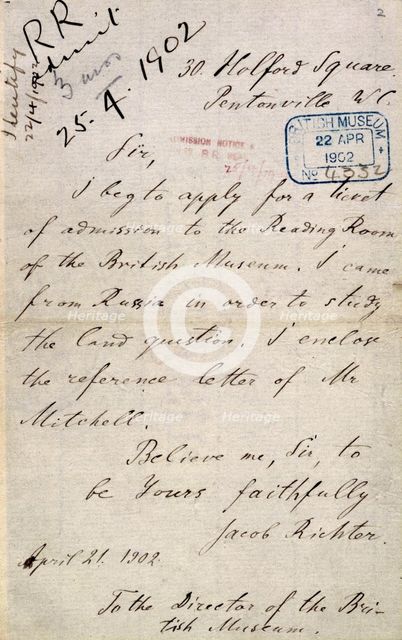 2
RR
admit
3 mos
25.4.1902
Identify
22/4/1902
30. Holford Square.
Pentonville W.C.
BRITISH MUSEUM
22 APR
1902
No 4332
ADMISSION NOTICE &
RR
Sir,
I beg to apply for a ticket
of admission to the Reading Room
of the British Museum. I came
from Russia in order to study
the land question. I enclose
the reference letter of Mr
Mitchell.
Believe me, Sir, to
be Yours faithfully
Jacob Richter.
April 21. 1902.
To the Director of the Bri-
tish Museum.
Heritage
Heritage
Heritage
Heritage
Heritage
Heritage